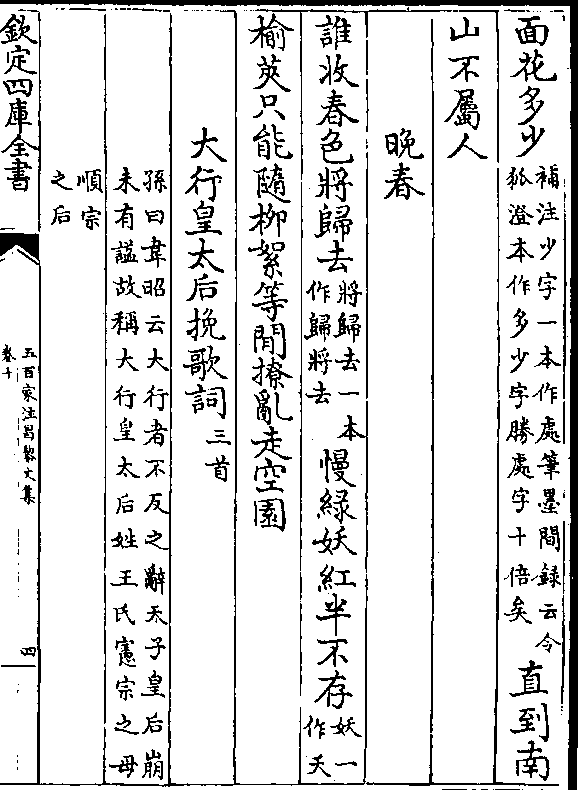 面花多少補注少字一本作處筆墨間録云令
狐澄本作多少字勝處字十倍矣直到南
山不屬人
晩春
誰收春色將歸去將歸去一本
作歸將去慢緑妖紅半不存妖一
作夭
榆莢只能隨柳絮等閒撩亂走空園
大行皇太后挽歌詞三首
孫曰韋昭云大行者不反之辭天子皇后崩
未有諡故稱大行皇太后姓王氏憲宗之母
順宗
之后
欽定四庫全書
五百家注昌黎文集
卷十
四